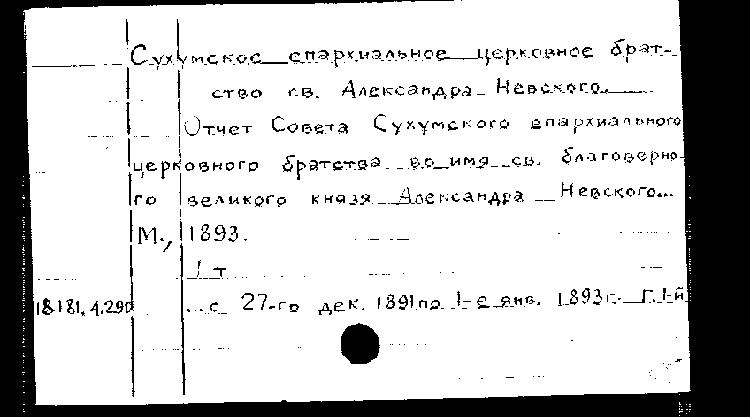 Сухумское епархиальное церковное брат-
ство св. Александра Невского.
Отчет Совета Сухумского епархиального
церковного братства во имя св. благоверно-
го великого князя Александра Невского...
М., 1893.
1 т
18.181.4.290 ...с 27-го дек. 1891 по 1-е янв. 1893 г. Г. 1-й